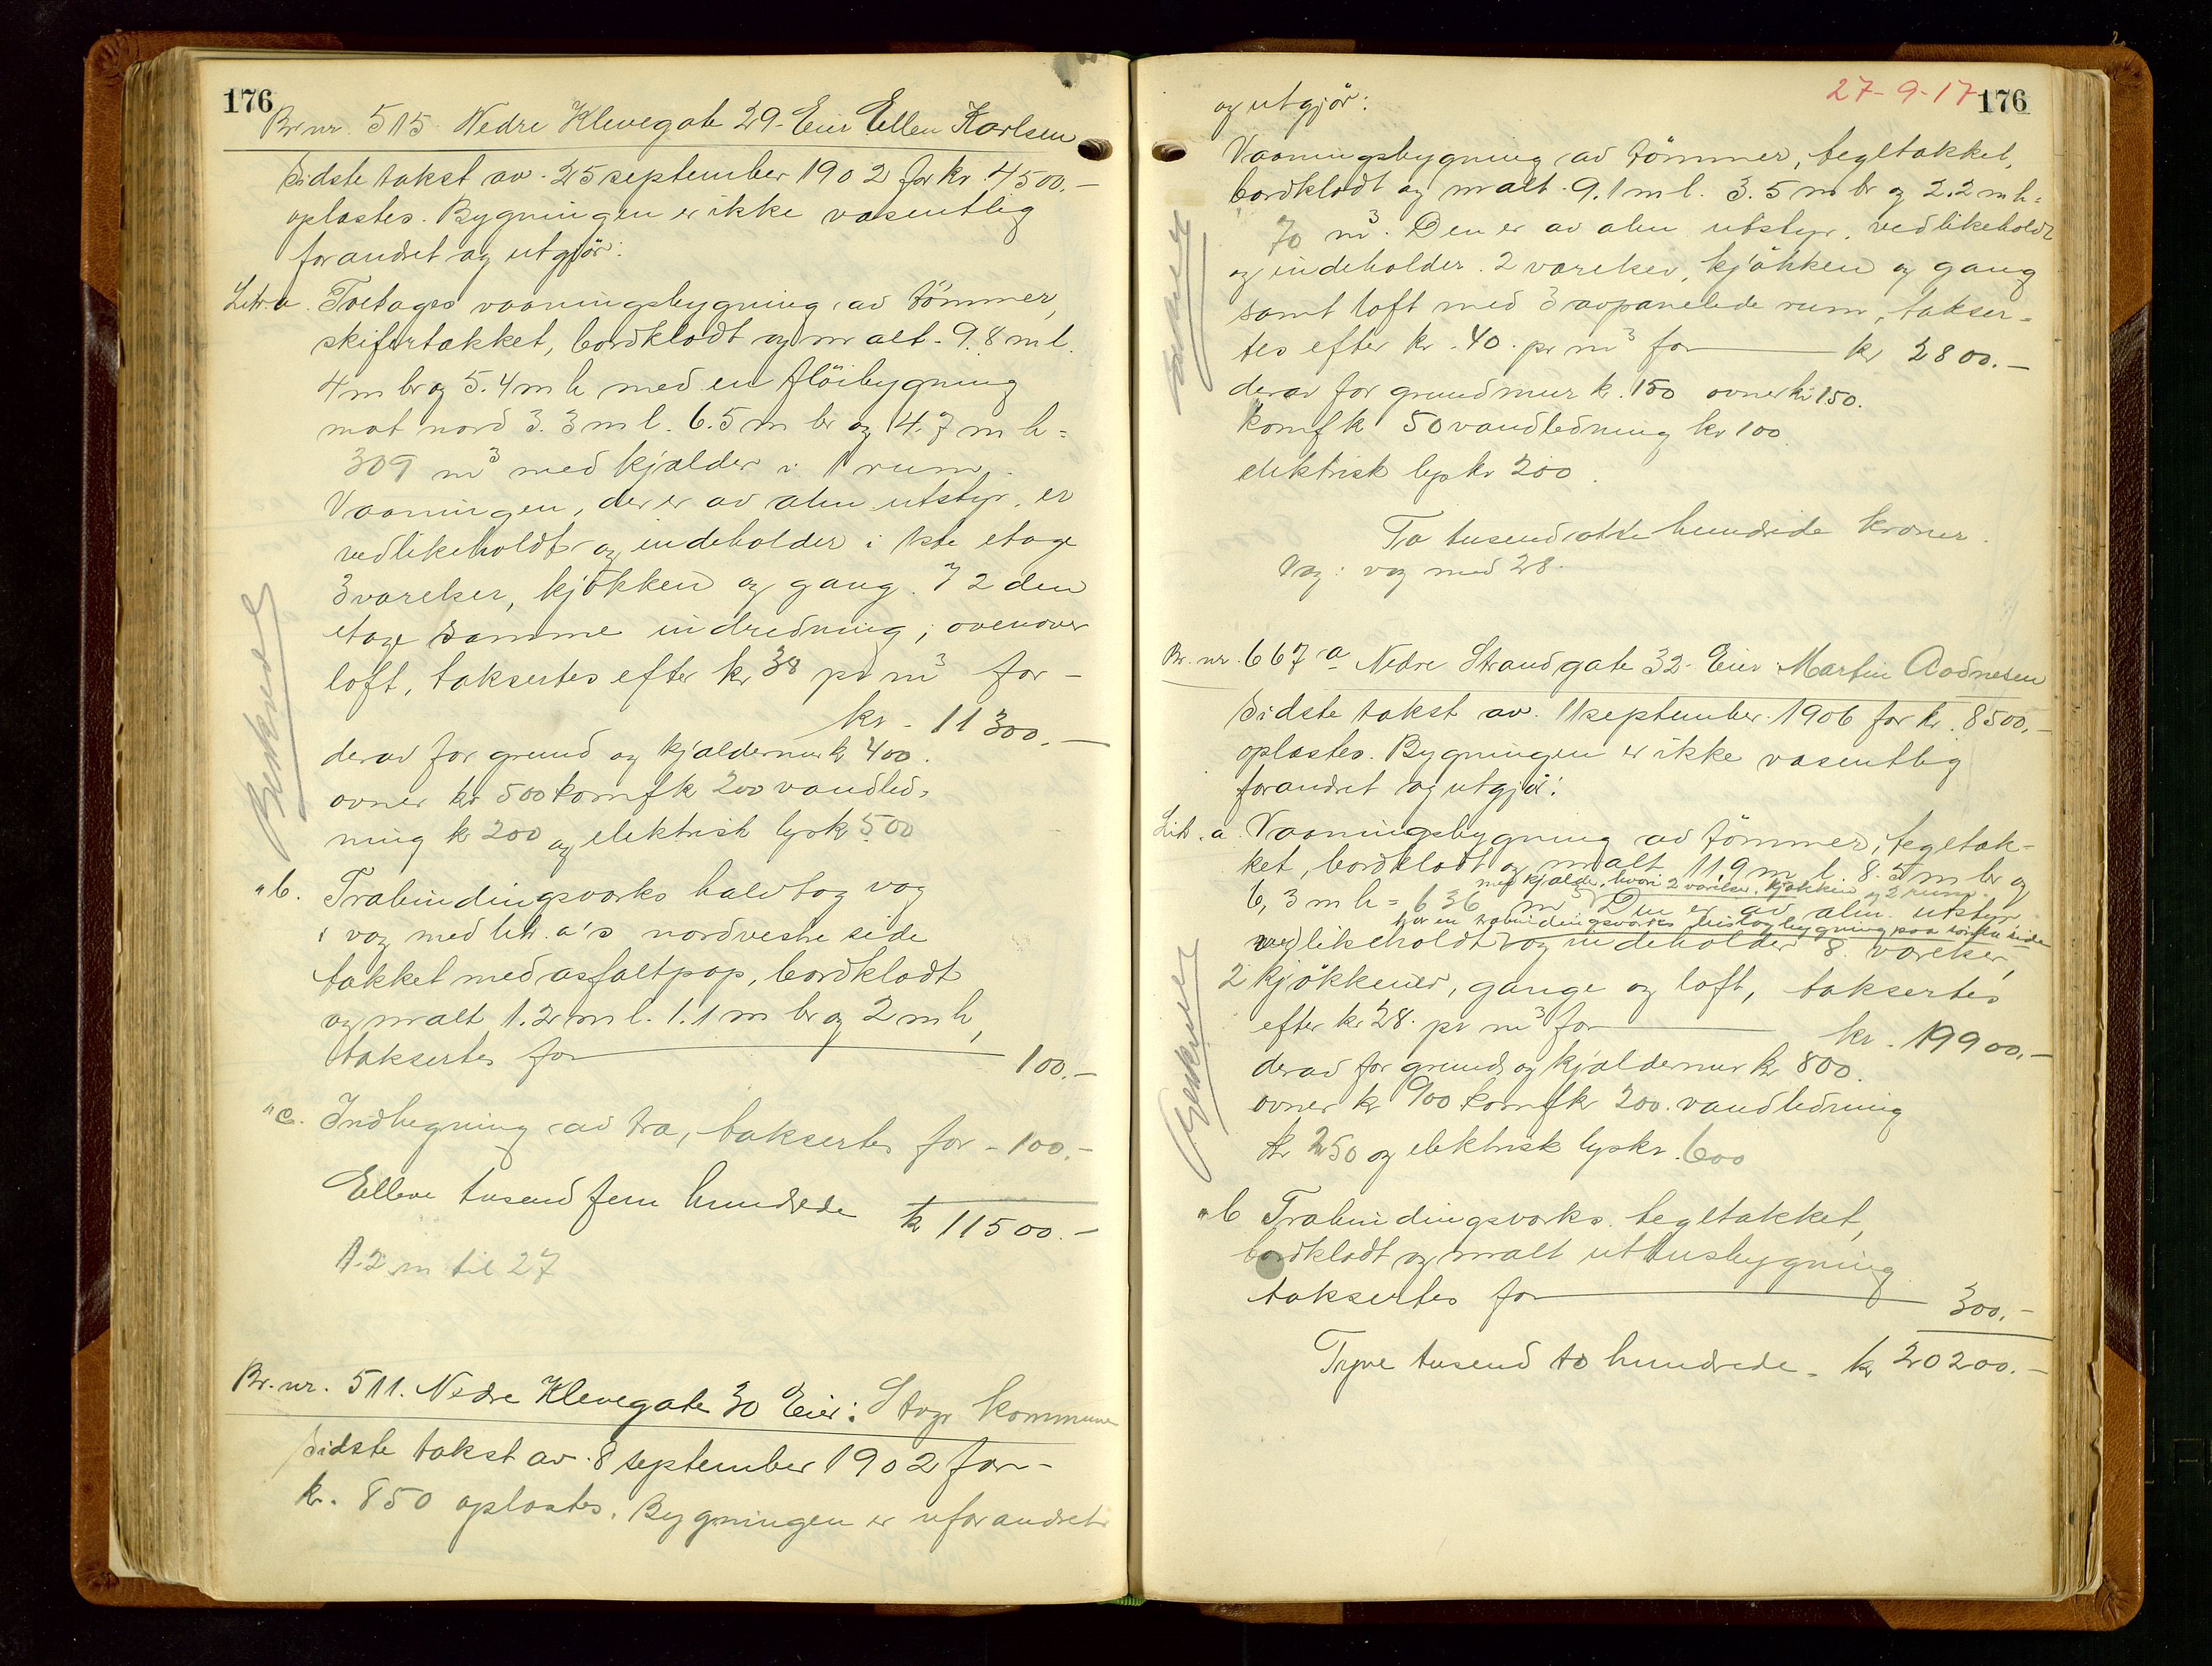 176
Br.nr. 515 Nedre Klevegate 29. Eier Ellen Karlsen
Sidste takst av 25 september 1902 for kr. 4500.-
oplæstes. Bygningen er ikke væsentlig
forandret og utgjör:
Litr. a. Toetages vaaningsbygning av tömmer,
skifertækket, bordklædt og malt - 9.8 m l.
4 m br og 5.4 m h med en flöibygning
mot nord 3.3 m l. 6.5 m br og 4.7 m h =
309 m³ med kjælder i 1 rum.
Vaaningen, der er av alm utstyr, er
vedlikeholdt og indeholder i 1ste etage
3 værelser, kjökken og gang. I 2 den
etage samme indredning; ovenover
loft, taksertes efter kr 38 pr m³ for -
kr - 11300.-
derav for grund og kjældermur kr 400.
ovner kr 500 komf kr 200 vandled-
ning kr 200 og elektrisk lys kr 500
" b. Træbindingsverks halvtag væg
i væg med litr. a's nordvestre side
tækket med asfaltpap, bordklædt
og malt 1.2 m l. 1.1 m br og 2 m h,
taksertes for 100.-
" c. Indhegning av træ, taksertes for - 100.-
Elleve tusend fem hundrede kr 11500.-
1.2 m til 27
Beskrevet
Br.nr. 511. Nedre Klevegate 30 Eier: Stvgr kommune
Sidste takst av 8 september 1902 for -
kr. 850 oplæstes. Bygningen er uforandret
27-9-17 176
og utgjör:
Vaaningsbygning av tömmer, tegltækket,
bordklædt og malt - 9.1 m l. 3.5 m br og 2.2 m h =
70 m³. Den er av alm utstyr, vedlikeholdt
og indeholder 2 værelser, kjökken og gang
samt loft med 3 avpanelede rum, takser-
tes efter kr. 40. pr m³ for kr 2800.-
derav for grundmur kr. 150 ovner kr 150.
Komf kr 50 vandledning kr 100.
elektrisk lys kr 200.
To tusend otte hundrede kroner.
Væg i væg med 28.
Beskrevet
Br. nr. 667 a Nedre Strandgate 32. Eier Martin Aadnesen
Sidste takst av 11 september 1906 for kr. 8500.-
oplæstes. Bygningen er ikke væsentlig
forandret og utgjör:
Litr. a. Vaaningsbygning av tömmer, tegltæk-
ket, bordklædt og malt 11.9 m l. 8.5 m br og
med kjælder, hvori 2 værelser, kjökken og 2 rum.
6,3 m h = 636 m³ Den er av alm. utstyr
har en træbindingsverks bislagbygning paa söndre side
vedlikeholdt og indeholder 8 værelser,
2 kjökkener, gange og loft, taksertes
efter kr 28. pr m³ for kr. 19900.-
derav for grund og kjældermur kr 800.
ovner kr 900 komf kr 200. vandledning
kr 250 og elektrisk lys kr. 600
" b Træbindingsverks tegltækket,
bordklædt og malt uthusbygning
taksertes for 300.-
Tyve tusend to hundrede - kr 20200.-
Beskrevet